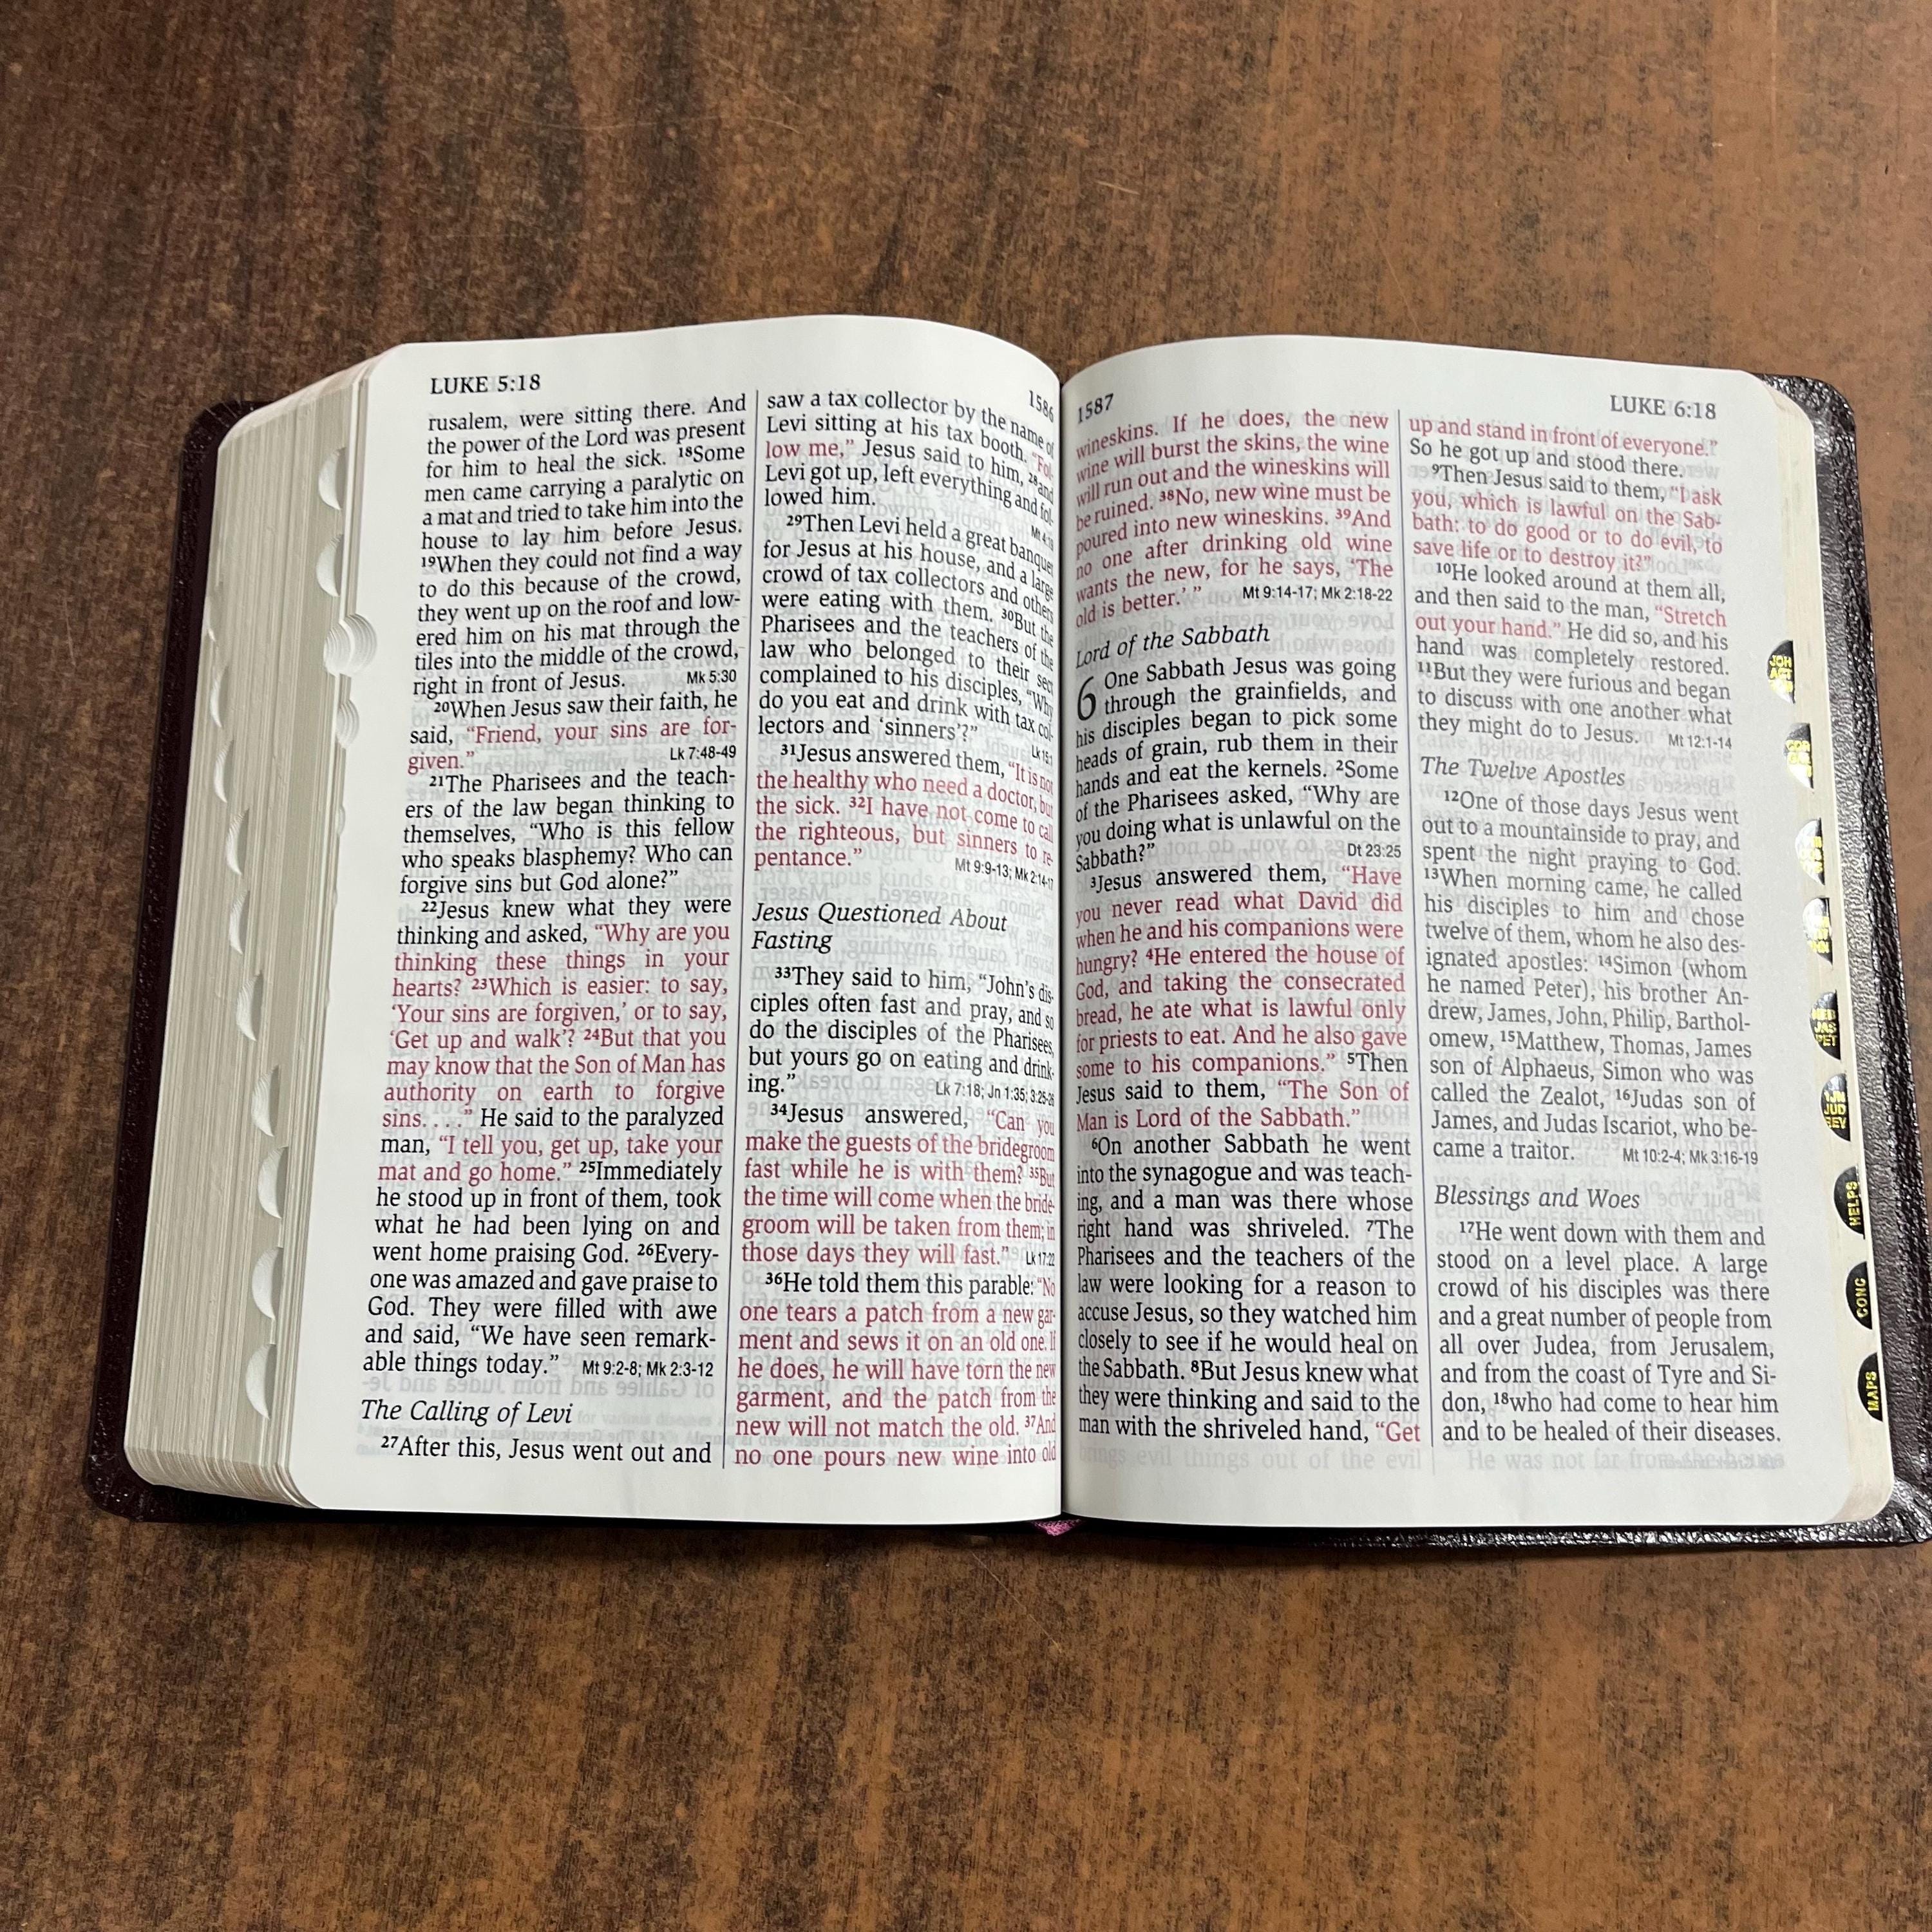 LUKE 5:18
rusalem, were sitting there. And
the power of the Lord was present
for him to heal the sick. ¹⁸Some
men came carrying a paralytic on
a mat and tried to take him into the
house to lay him before Jesus.
¹⁹When they could not find a way
to do this because of the crowd,
they went up on the roof and low-
ered him on his mat through the
tiles into the middle of the crowd,
right in front of Jesus. Mk 5:30
²⁰When Jesus saw their faith, he
said, “Friend, your sins are for-
given.” Lk 7:48-49
²¹The Pharisees and the teach-
ers of the law began thinking to
themselves, “Who is this fellow
who speaks blasphemy? Who can
forgive sins but God alone?”
²²Jesus knew what they were
thinking and asked, “Why are you
thinking these things in your
hearts? ²³Which is easier: to say,
‘Your sins are forgiven,’ or to say,
‘Get up and walk’? ²⁴But that you
may know that the Son of Man has
authority on earth to forgive
sins. . . .” He said to the paralyzed
man, “I tell you, get up, take your
mat and go home.” ²⁵Immediately
he stood up in front of them, took
what he had been lying on and
went home praising God. ²⁶Every-
one was amazed and gave praise to
God. They were filled with awe
and said, “We have seen remark-
able things today.” Mt 9:2-8; Mk 2:3-12
The Calling of Levi
²⁷After this, Jesus went out and
1586
saw a tax collector by the name of
Levi sitting at his tax booth. “Fol-
low me,” Jesus said to him, ²⁸and
Levi got up, left everything and fol-
lowed him.
²⁹Then Levi held a great banquet
for Jesus at his house, and a large
crowd of tax collectors and others
were eating with them. ³⁰But the
Pharisees and the teachers of the
law who belonged to their sect
complained to his disciples, “Why
do you eat and drink with tax col-
lectors and ‘sinners’?” Lk 15:1
³¹Jesus answered them, “It is not
the healthy who need a doctor, but
the sick. ³²I have not come to call
the righteous, but sinners to re-
pentance.” Mt 9:9-13; Mk 2:14-17
Jesus Questioned About
Fasting
³³They said to him, “John’s dis-
ciples often fast and pray, and so
do the disciples of the Pharisees,
but yours go on eating and drink-
ing.” Lk 7:18; Jn 1:35; 3:25-26
³⁴Jesus answered, “Can you
make the guests of the bridegroom
fast while he is with them? ³⁵But
the time will come when the bride-
groom will be taken from them; in
those days they will fast.” Lk 17:22
³⁶He told them this parable: “No
one tears a patch from a new gar-
ment and sews it on an old one. If
he does, he will have torn the new
garment, and the patch from the
new will not match the old. ³⁷And
no one pours new wine into old
1587
wineskins. If he does, the new
wine will burst the skins, the wine
will run out and the wineskins will
be ruined. ³⁸No, new wine must be
poured into new wineskins. ³⁹And
no one after drinking old wine
wants the new, for he says, ‘The
old is better.’ ” Mt 9:14-17; Mk 2:18-22
Lord of the Sabbath
6 One Sabbath Jesus was going
through the grainfields, and
his disciples began to pick some
heads of grain, rub them in their
hands and eat the kernels. ²Some
of the Pharisees asked, “Why are
you doing what is unlawful on the
Sabbath?” Dt 23:25
³Jesus answered them, “Have
you never read what David did
when he and his companions were
hungry? ⁴He entered the house of
God, and taking the consecrated
bread, he ate what is lawful only
for priests to eat. And he also gave
some to his companions.” ⁵Then
Jesus said to them, “The Son of
Man is Lord of the Sabbath.”
⁶On another Sabbath he went
into the synagogue and was teach-
ing, and a man was there whose
right hand was shriveled. ⁷The
Pharisees and the teachers of the
law were looking for a reason to
accuse Jesus, so they watched him
closely to see if he would heal on
the Sabbath. ⁸But Jesus knew what
they were thinking and said to the
man with the shriveled hand, “Get
LUKE 6:18
up and stand in front of everyone.”
So he got up and stood there.
⁹Then Jesus said to them, “I ask
you, which is lawful on the Sab-
bath: to do good or to do evil, to
save life or to destroy it?”
¹⁰He looked around at them all,
and then said to the man, “Stretch
out your hand.” He did so, and his
hand was completely restored.
¹¹But they were furious and began
to discuss with one another what
they might do to Jesus. Mt 12:1-14
The Twelve Apostles
¹²One of those days Jesus went
out to a mountainside to pray, and
spent the night praying to God.
¹³When morning came, he called
his disciples to him and chose
twelve of them, whom he also des-
ignated apostles: ¹⁴Simon (whom
he named Peter), his brother An-
drew, James, John, Philip, Barthol-
omew, ¹⁵Matthew, Thomas, James
son of Alphaeus, Simon who was
called the Zealot, ¹⁶Judas son of
James, and Judas Iscariot, who be-
came a traitor. Mt 10:2-4; Mk 3:16-19
Blessings and Woes
¹⁷He went down with them and
stood on a level place. A large
crowd of his disciples was there
and a great number of people from
all over Judea, from Jerusalem,
and from the coast of Tyre and Si-
don, ¹⁸who had come to hear him
and to be healed of their diseases.
JOH
ACT
HEB
JAS
PET
1JN
JUD
REV
HELPS
CONC
MAPS